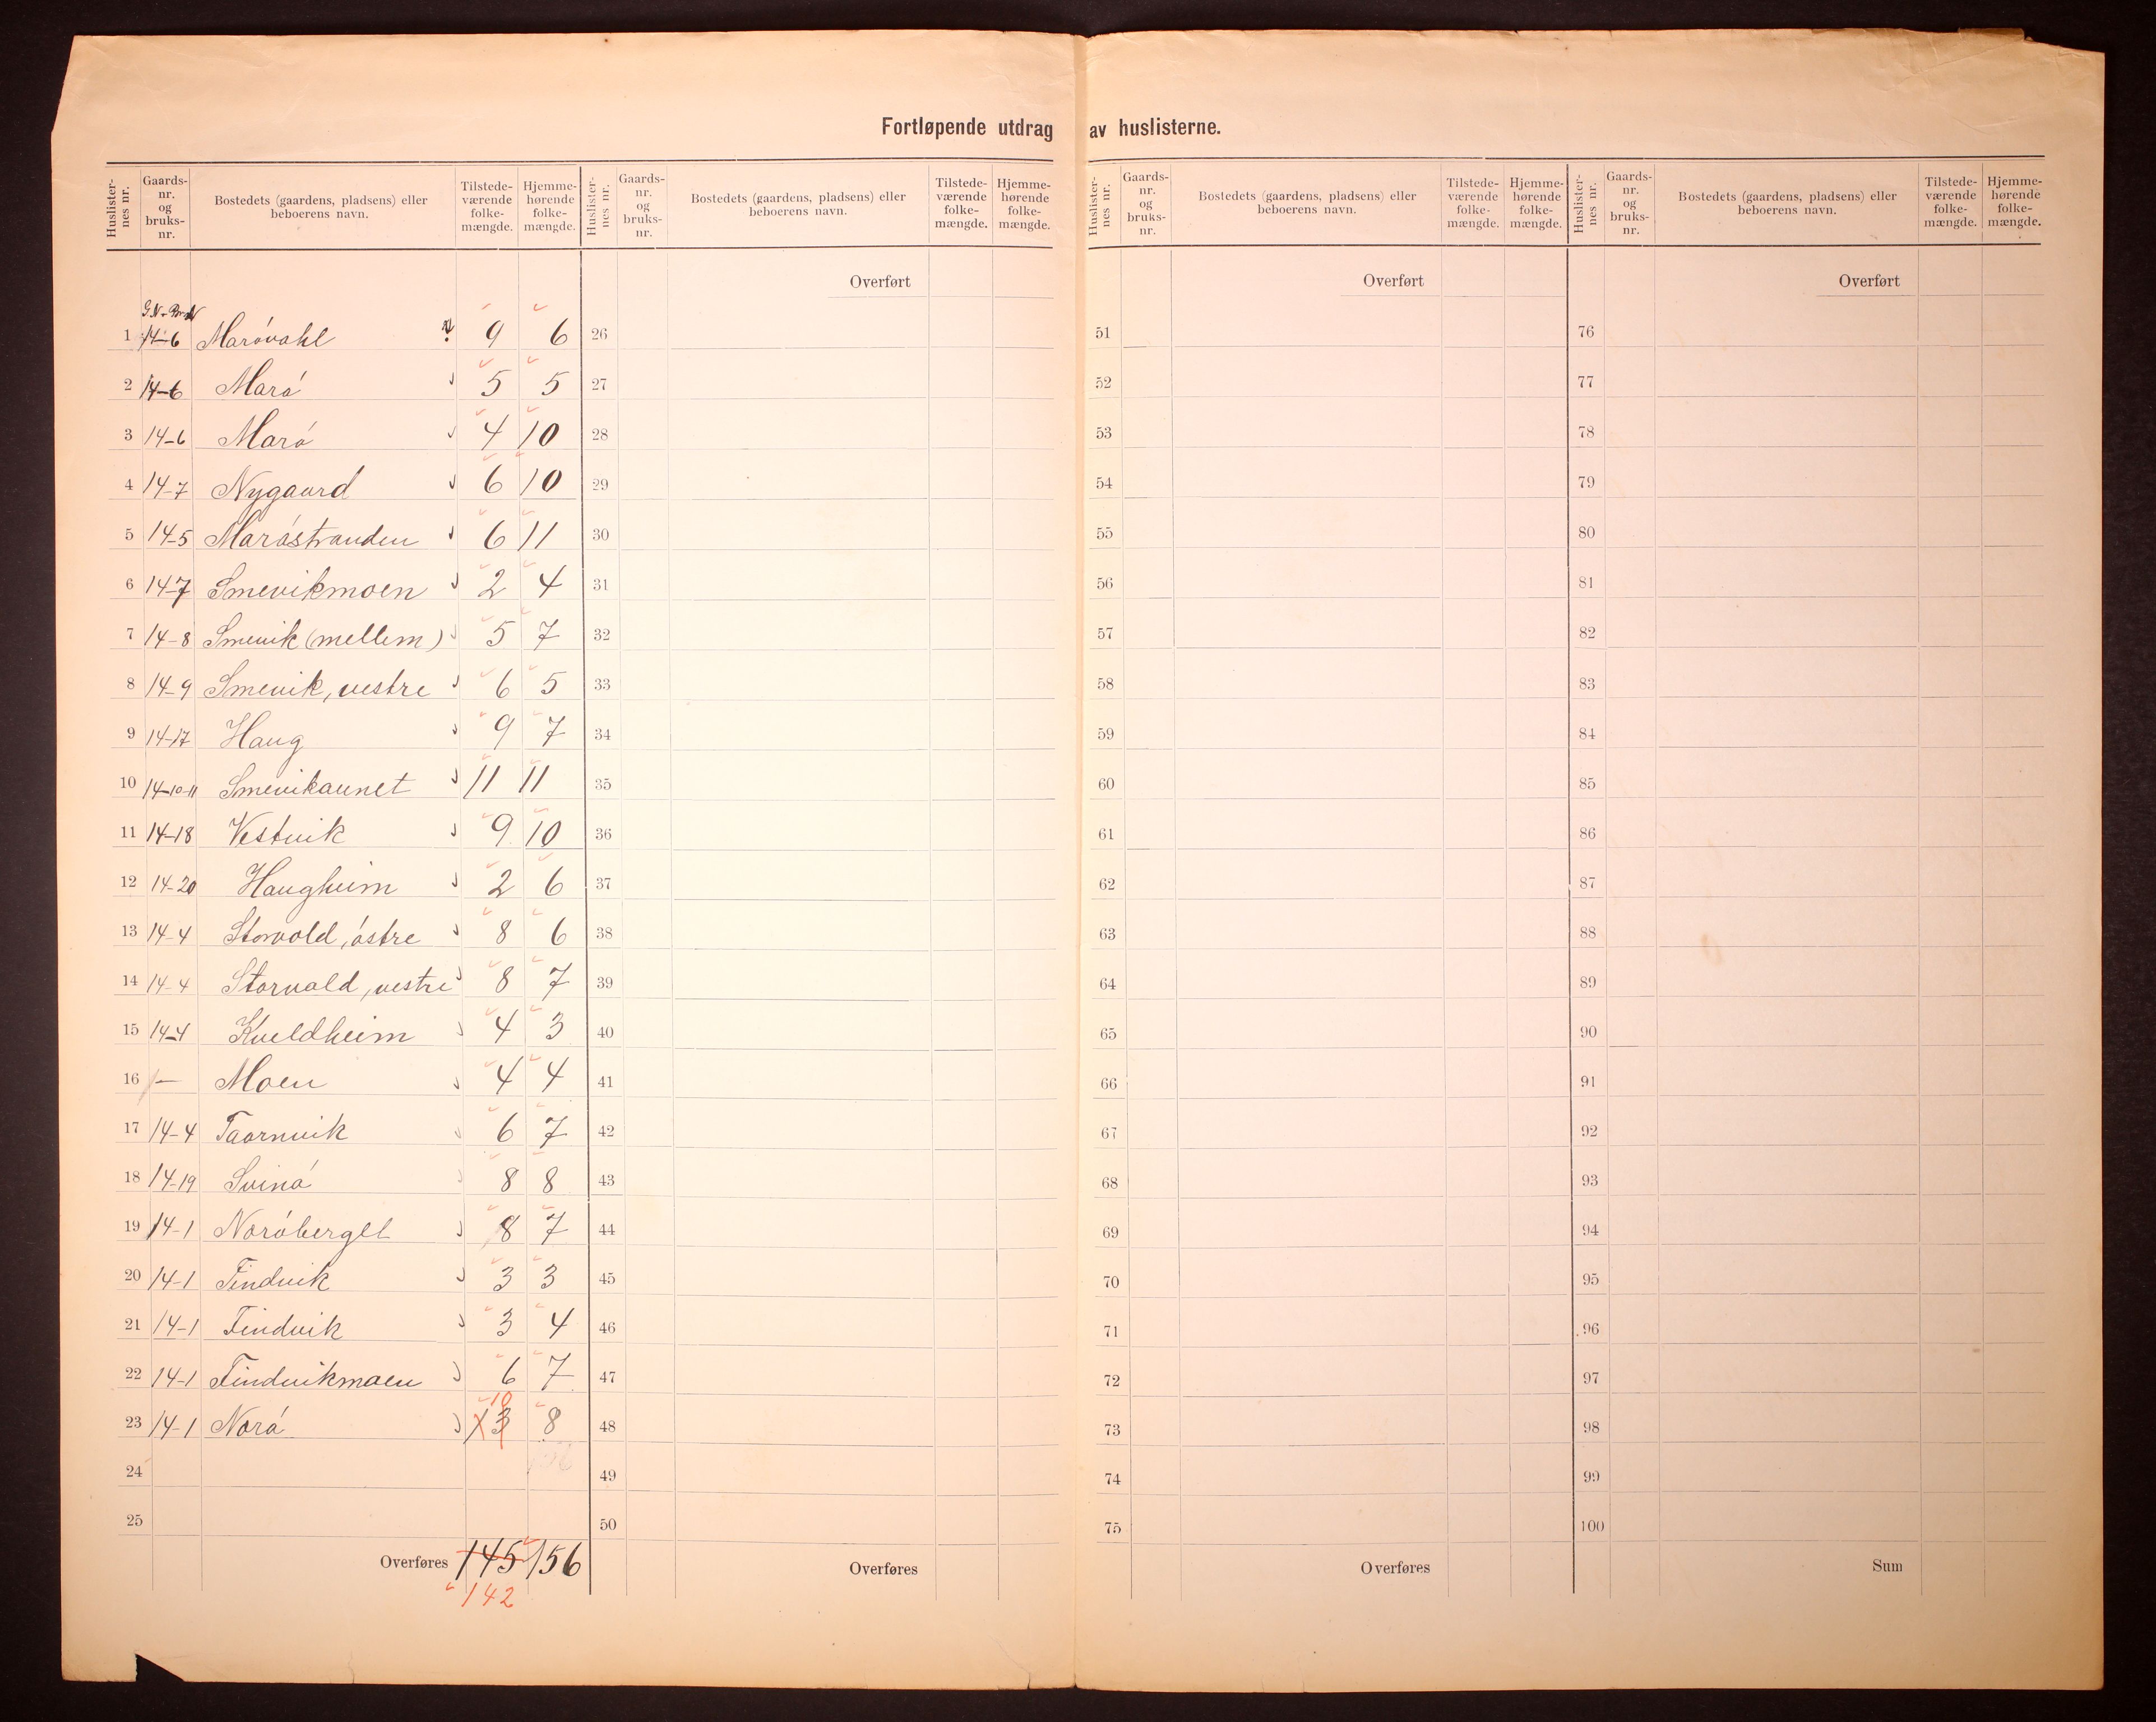 Fortløpende utdrag av huslisternе.
Huslister-nes nr. Gaards-nr. og bruks-nr. Bostedets (gaardens, pladsens) eller beboerens navn. Tilstede-værende folke-mængde. Hjemme-hørende folke-mængde. Huslister-nes nr. Gaards-nr. og bruks-nr. Bostedets (gaardens, pladsens) eller beboerens navn. Tilstede-værende folke-mængde. Hjemme-hørende folke-mængde. Huslister-nes nr. Gaards-nr. og bruks-nr. Bostedets (gaardens, pladsens) eller beboerens navn. Tilstede-værende folke-mængde. Hjemme-hørende folke-mængde. Huslister-nes nr. Gaards-nr. og bruks-nr. Bostedets (gaardens, pladsens) eller beboerens navn. Tilstede-værende folke-mængde. Hjemme-hørende folke-mængde.
Overført Overført Overført
1 14-6 Marövahl 9 6 26 51 76
2 14-6 Marö 5 5 27 52 77
3 14-6 Marö 4 10 28 53 78
4 14-7 Nygaard 6 10 29 54 79
5 14-5 Maröstranden 6 11 30 55 80
6 14-7 Smevikmoen 2 4 31 56 81
7 14-8 Smevik (mellem) 5 7 32 57 82
8 14-9 Smevik, vestre 6 5 33 58 83
9 14-17 Haug 9 7 34 59 84
10 14-10-11 Smevikaunet 11 11 35 60 85
11 14-18 Vestvik 9 10 36 61 86
12 14-20 Haugheim 2 6 37 62 87
13 14-4 Storvold, östre 8 6 38 63 88
14 14-4 Storvold, vestre 8 7 39 64 89
15 14-4 Kveldheim 4 3 40 65 90
16 – Moen 4 4 41 66 91
17 14-4 Taarnvik 6 7 42 67 92
18 14-19 Svinö 8 8 43 68 93
19 14-1 Noröberget 8 7 44 69 94
20 14-1 Findvik 3 3 45 70 95
21 14-1 Findvik 3 4 46 71 96
22 14-1 Findvikmoen 6 7 47 72 97
10
23 14-1 Norö 13 8 48 73 98
24 49 74 99
25 50 75 100
Overføres 145 156 Overføres Overføres Sum
142